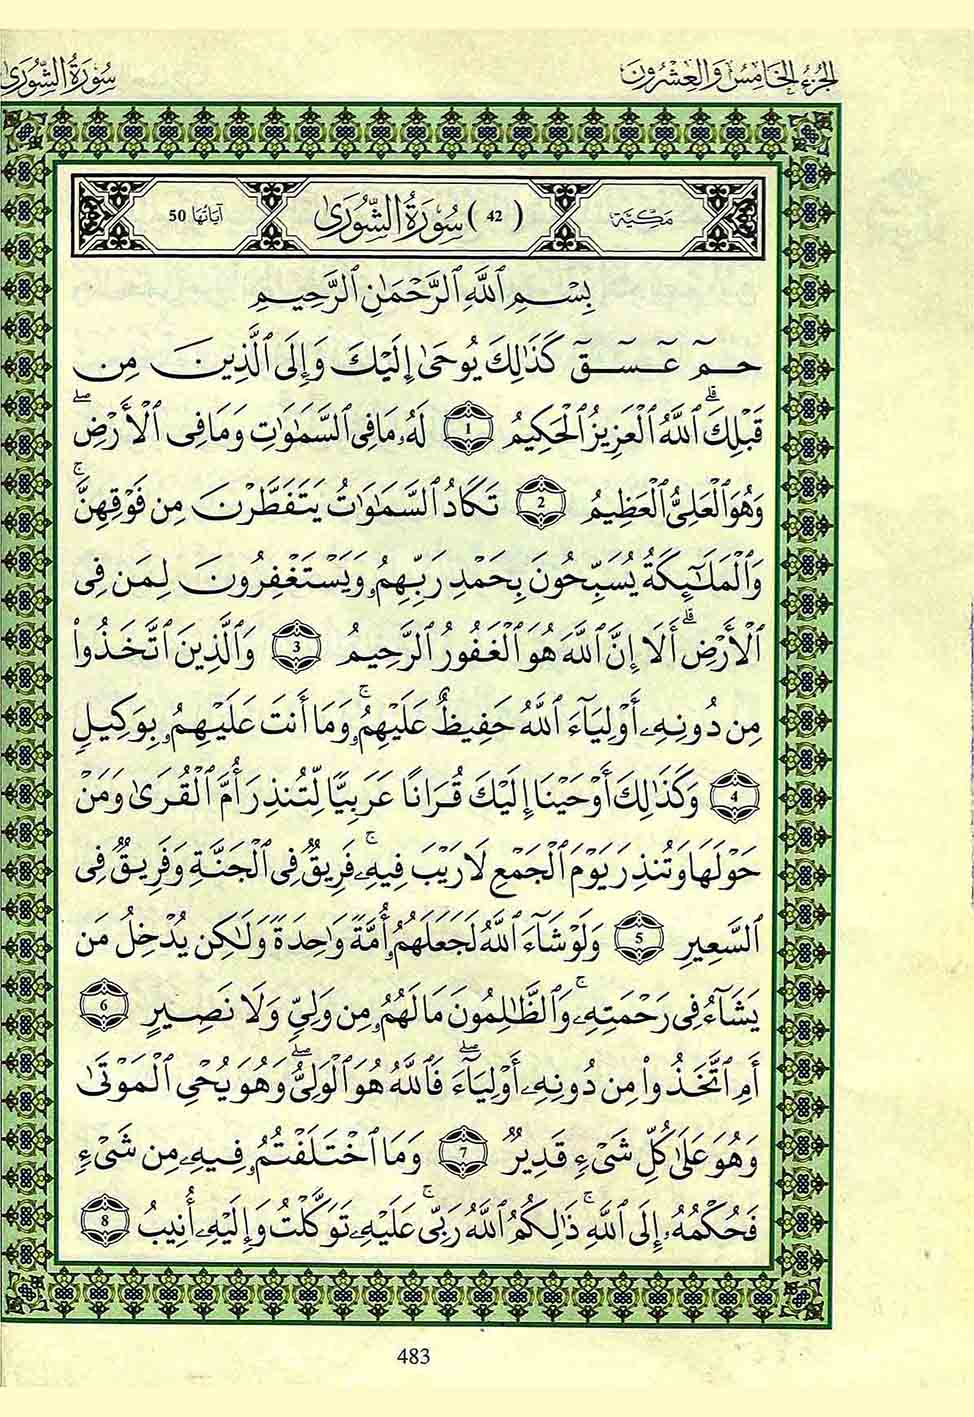 الجزء الخامس والعشرون
سورة الشورى
مكية
(42) سُورَةُ الشُّورَىٰ
آياتها 50
بِسْمِ اِ۬للَّهِ اِ۬لرَّحْمَٰنِ اِ۬لرَّحِيمِ
حٓمٓ عٓسٓقٓ كَذَٰلِكَ يُوحَىٰ إِلَيْكَ وَإِلَى اَ۬لَّذِينَ مِن
قَبْلِكَ ۗ اَ۬للَّهُ اُ۬لْعَزِيزُ اُ۬لْحَكِيمُ 1 لَهُۥ مَا فِى اِ۬لسَّمَٰوَٰتِ وَمَا فِى اِ۬لْأَرْضِ ۖ
وَهُوَ اَ۬لْعَلِىُّ اُ۬لْعَظِيمُ 2 تَكَادُ اُ۬لسَّمَٰوَٰتُ يَتَفَطَّرْنَ مِن فَوْقِهِنَّ ۚ
وَالْمَلَٰٓئِكَةُ يُسَبِّحُونَ بِحَمْدِ رَبِّهِمُۥ وَيَسْتَغْفِرُونَ لِمَن فِى
اِ۬لْأَرْضِ ۗ أَلَا إِنَّ اَ۬للَّهَ هُوَ اَ۬لْغَفُورُ اُ۬لرَّحِيمُ 3 وَالَّذِينَ اَ۪تَّخَذُوا۟
مِن دُونِهِۦ أَوْلِيَآءَ اَ۬للَّهُ حَفِيظٌ عَلَيْهِمُۥ ۚ وَمَا أَنتَ عَلَيْهِمُۥ بِوَكِيلٍ
4 وَكَذَٰلِكَ أَوْحَيْنَا إِلَيْكَ قُرَانًا عَرَبِيًّا لِّتُنذِرَ أُمَّ اَ۬لْقُرَىٰ وَمَنْ
حَوْلَهَا وَتُنذِرَ يَوْمَ اَ۬لْجَمْعِ لَا رَيْبَ فِيهِۦ ۚ فَرِيقٌ فِى اِ۬لْجَنَّةِ وَفَرِيقٌ فِى
اِ۬لسَّعِيرِ 5 وَلَوْ شَآءَ اَ۬للَّهُ لَجَعَلَهُمُۥ أُمَّةً وَٰحِدَةً وَلَٰكِن يُدْخِلُ مَن
يَشَآءُ فِى رَحْمَتِهِۦ ۚ وَالظَّٰلِمُونَ مَا لَهُمُۥ مِن وَلِىٍّ وَلَا نَصِيرٍ 6
أَمِ اِ۪تَّخَذُوا۟ مِن دُونِهِۦ أَوْلِيَآءَ ۖ فَاللَّهُ هُوَ اَ۬لْوَلِىُّ ۖ وَهُوَ يُحْىِ اِ۬لْمَوْتَىٰ
وَهُوَ عَلَىٰ كُلِّ شَىْءٍ قَدِيرٌ 7 وَمَا اَ۪خْتَلَفْتُمُۥ فِيهِۦ مِن شَىْءٍ
فَحُكْمُهُۥ إِلَى اَ۬للَّهِ ۚ ذَٰلِكُمُ اُ۬للَّهُ رَبِّى ۚ عَلَيْهِۦ تَوَكَّلْتُ وَإِلَيْهِۦ أُنِيبُ 8
483